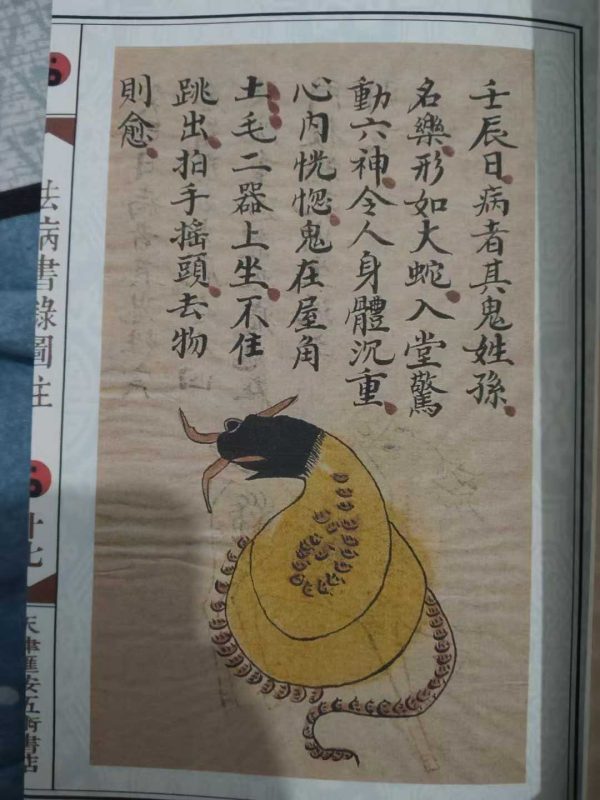 壬辰日病者其鬼姓孫
名樂形如大蛇入堂驚
動六神令人身體沉重
心内恍惚鬼在屋角
土毛二器上坐不住
跳出拍手摇頭去物
則愈
法病書錄圖注
廿七
天津匯安五術書店